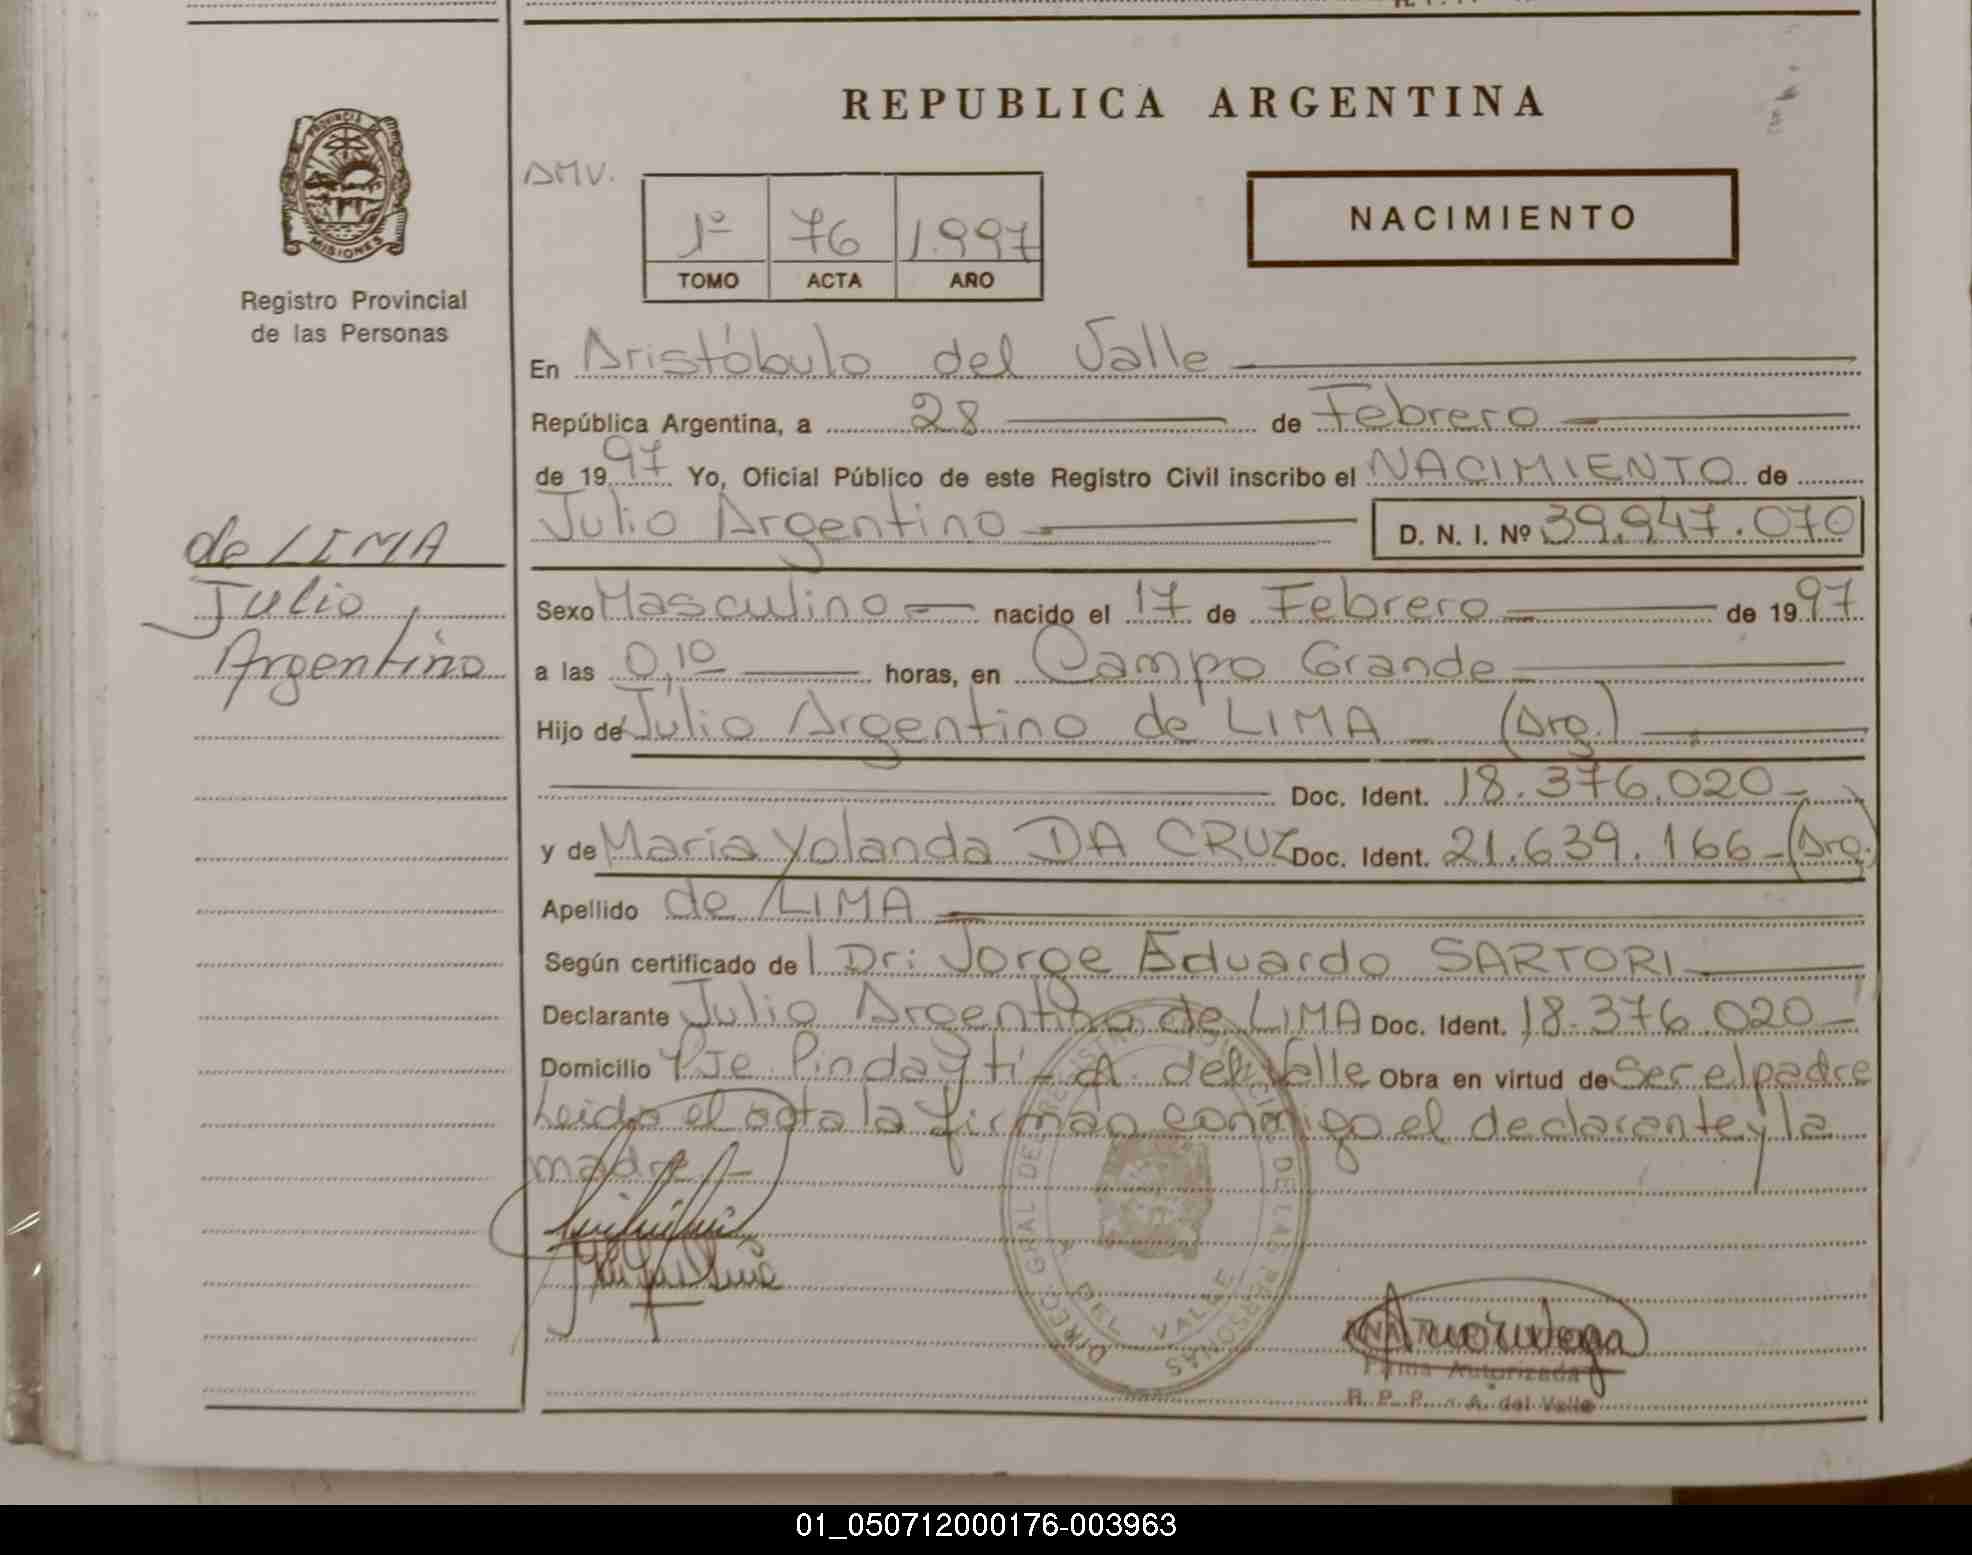 REPUBLICA ARGENTINA
PROVINCIA DE
MISIONES
Registro Provincial
de las Personas
AMV.
1º 76 1.997
TOMO ACTA AÑO
NACIMIENTO
En Aristóbulo del Valle
República Argentina, a 28 de Febrero
de 1997 Yo, Oficial Público de este Registro Civil inscribo el NACIMIENTO de
Julio Argentino D. N. I. Nº 39.947.070
de LIMA
Julio
Argentino
Sexo Masculino nacido el 17 de Febrero de 1997
a las 0,10 horas, en Campo Grande
Hijo de Julio Argentino de LIMA (Arg.)
Doc. Ident. 18.376.020
y de Maria Yolanda DA CRUZ Doc. Ident. 21.639.166 (Arg.)
Apellido de LIMA
Según certificado de l Dr: Jorge Eduardo SARTORI
Declarante Julio Argentino de LIMA Doc. Ident. 18.376.020
Domicilio Pje. Pindaytí - A. del Valle Obra en virtud de ser el padre
Leida el acta la firman conmigo el declarante y la
madre.-
DIREC. GRAL DE REGISTRO PROVINCIAL DE LAS PERSONAS
DEL VALLE
Firma Autorizada
R. P. P. - A. del Valle
01_050712000176-003963